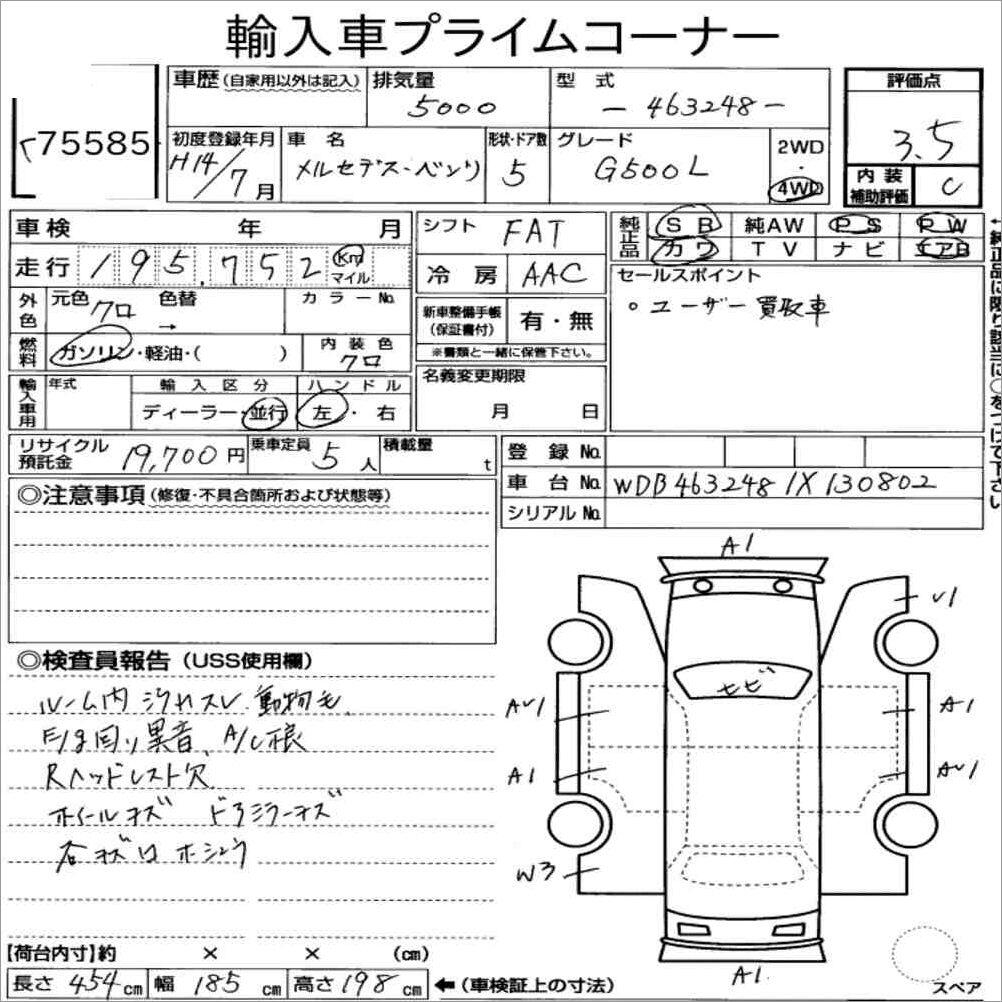 輸入車プライムコーナー
75585
車歴(自家用以外は記入) 排気量 型式 評価点
5000 -463248- 3.5
初度登録年月 車名 形状・ドア数 グレード 2WD・4WD
H14/7月 メルセデス・ベンツ 5 G500L
内装補助評価 C
車検 年 月 シフト FAT 純正品 SB 純AW PS PW
カワ TV ナビ エアB
走行 195,752 Km マイル 冷房 AAC
セールスポイント
外色 元色 クロ 色替 → カラーNo.
新車整備手帳(保証書付) 有・無
・ユーザー買取車
※書類と一緒に保管下さい。
燃料 ガソリン・軽油・( ) 内装色 クロ
名義変更期限
月 日
輸入車用 年式 輸入区分 ハンドル
ディーラー・並行 左・右
リサイクル預託金 19,700円 乗車定員 5人 積載量 t
登録No.
車台No. WDB4632481X130802
シリアルNo.
◎注意事項(修復・不具合箇所および状態等)
←純正品に限り該当に○をつけて下さい
A1
U1
◎検査員報告(USS使用欄)
ヒビ
ルーム内ヨゴレスレ 動物毛
AU1 A1
異音、A/C
A1 AU1
Rヘッドレスト欠
ホイールキズ ドアミラーキズ
W3
【荷台内寸】約 × × (cm)
長さ 454cm 幅 185cm 高さ 198cm ←(車検証上の寸法)
A1
スペア